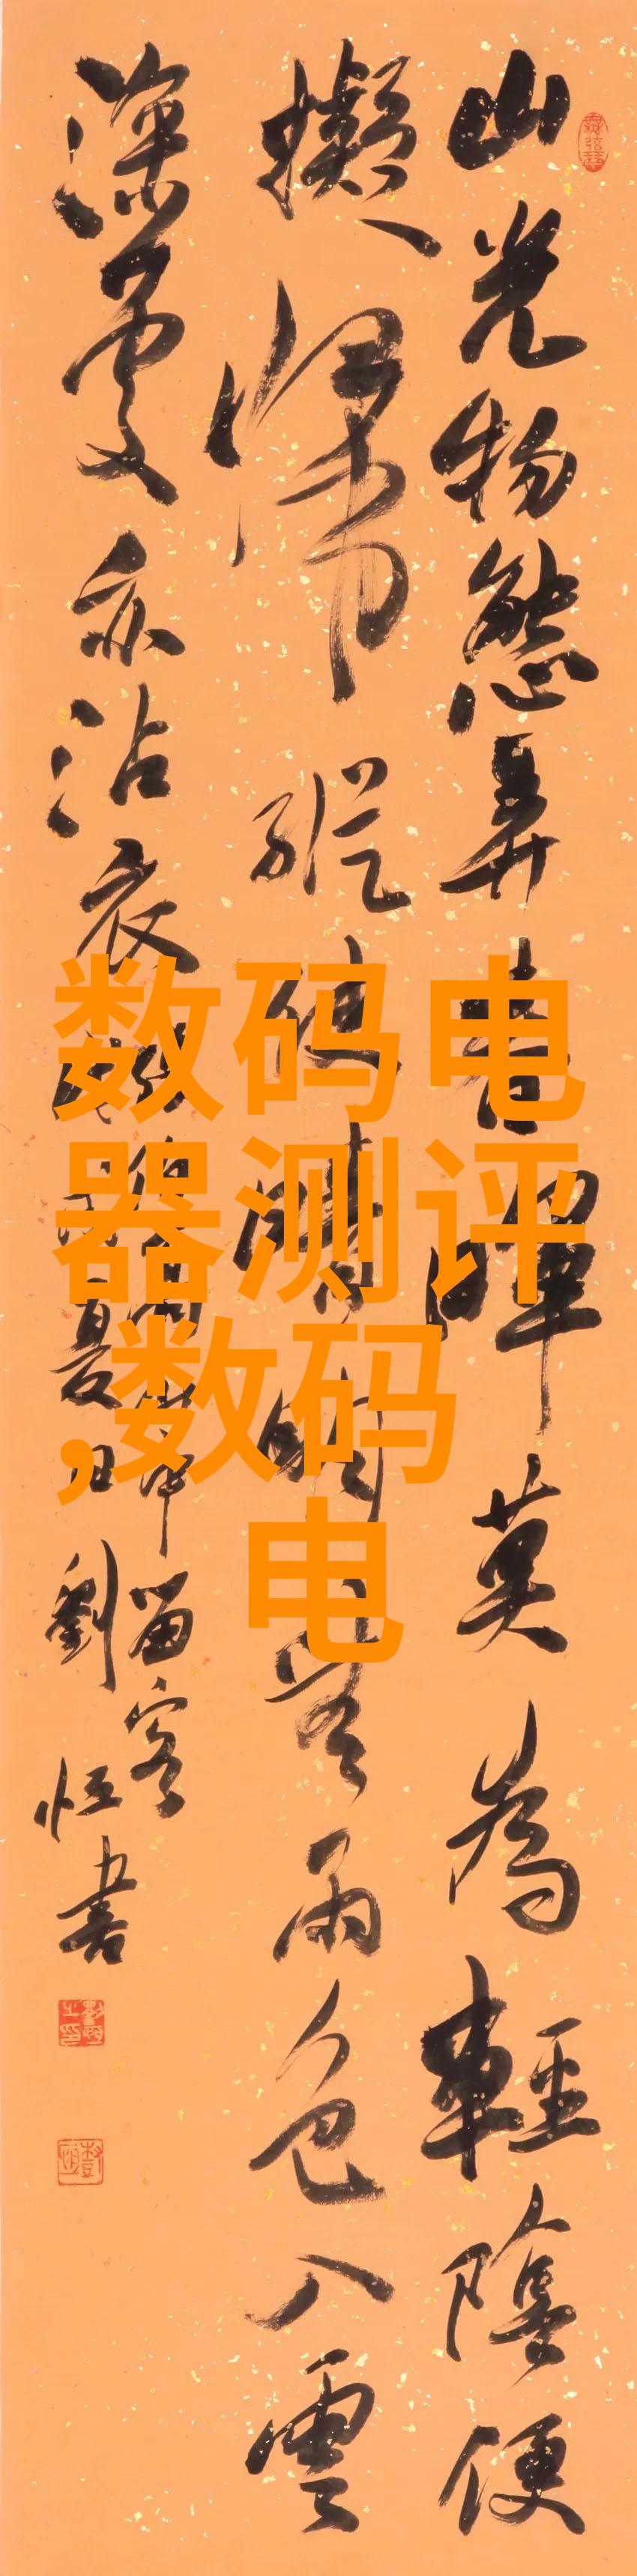 山光物態弄春暉莫為輕陰便
擬歸縱使晴明無雨色入雲
深處亦沾衣
中留客
夏日劉恒書
数码电
器测评
,数码
电